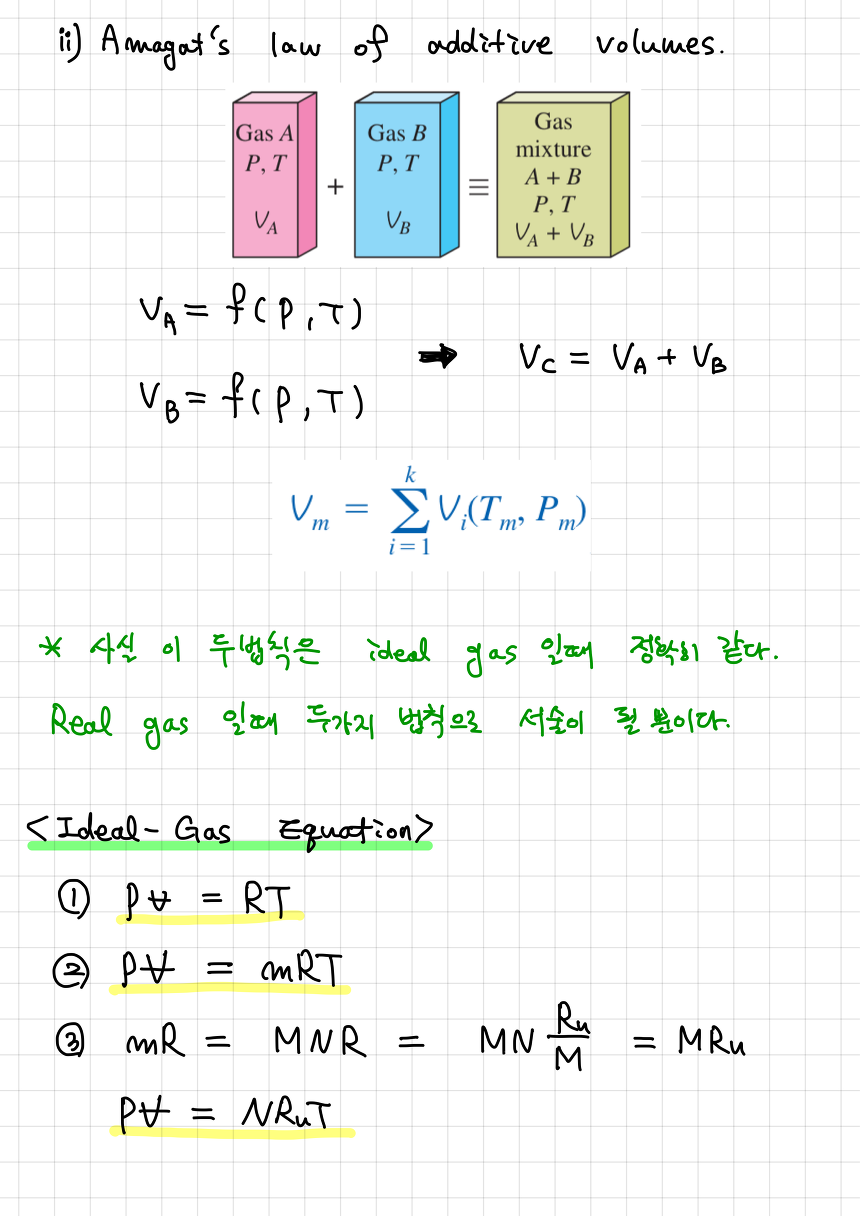 ii) Amagat's law of additive volumes.
Gas A
P, T
V_A
+
Gas B
P, T
V_B
≡
Gas
mixture
A + B
P, T
V_A + V_B
V_A = f(P, T)
➡ V_C = V_A + V_B
V_B = f(P, T)
V_m = \sum_{i=1}^{k} V_i(T_m, P_m)
* 사실 이 두법칙은 ideal gas 일때 정확히 같다.
Real gas 일때 두가지 법칙으로 서술이 될 뿐이다.
<Ideal-Gas Equation>
① P∀ = RT
② P∀ = mRT
③ mR = MNR = MN \frac{R_u}{M} = MR_u
P∀ = NR_uT